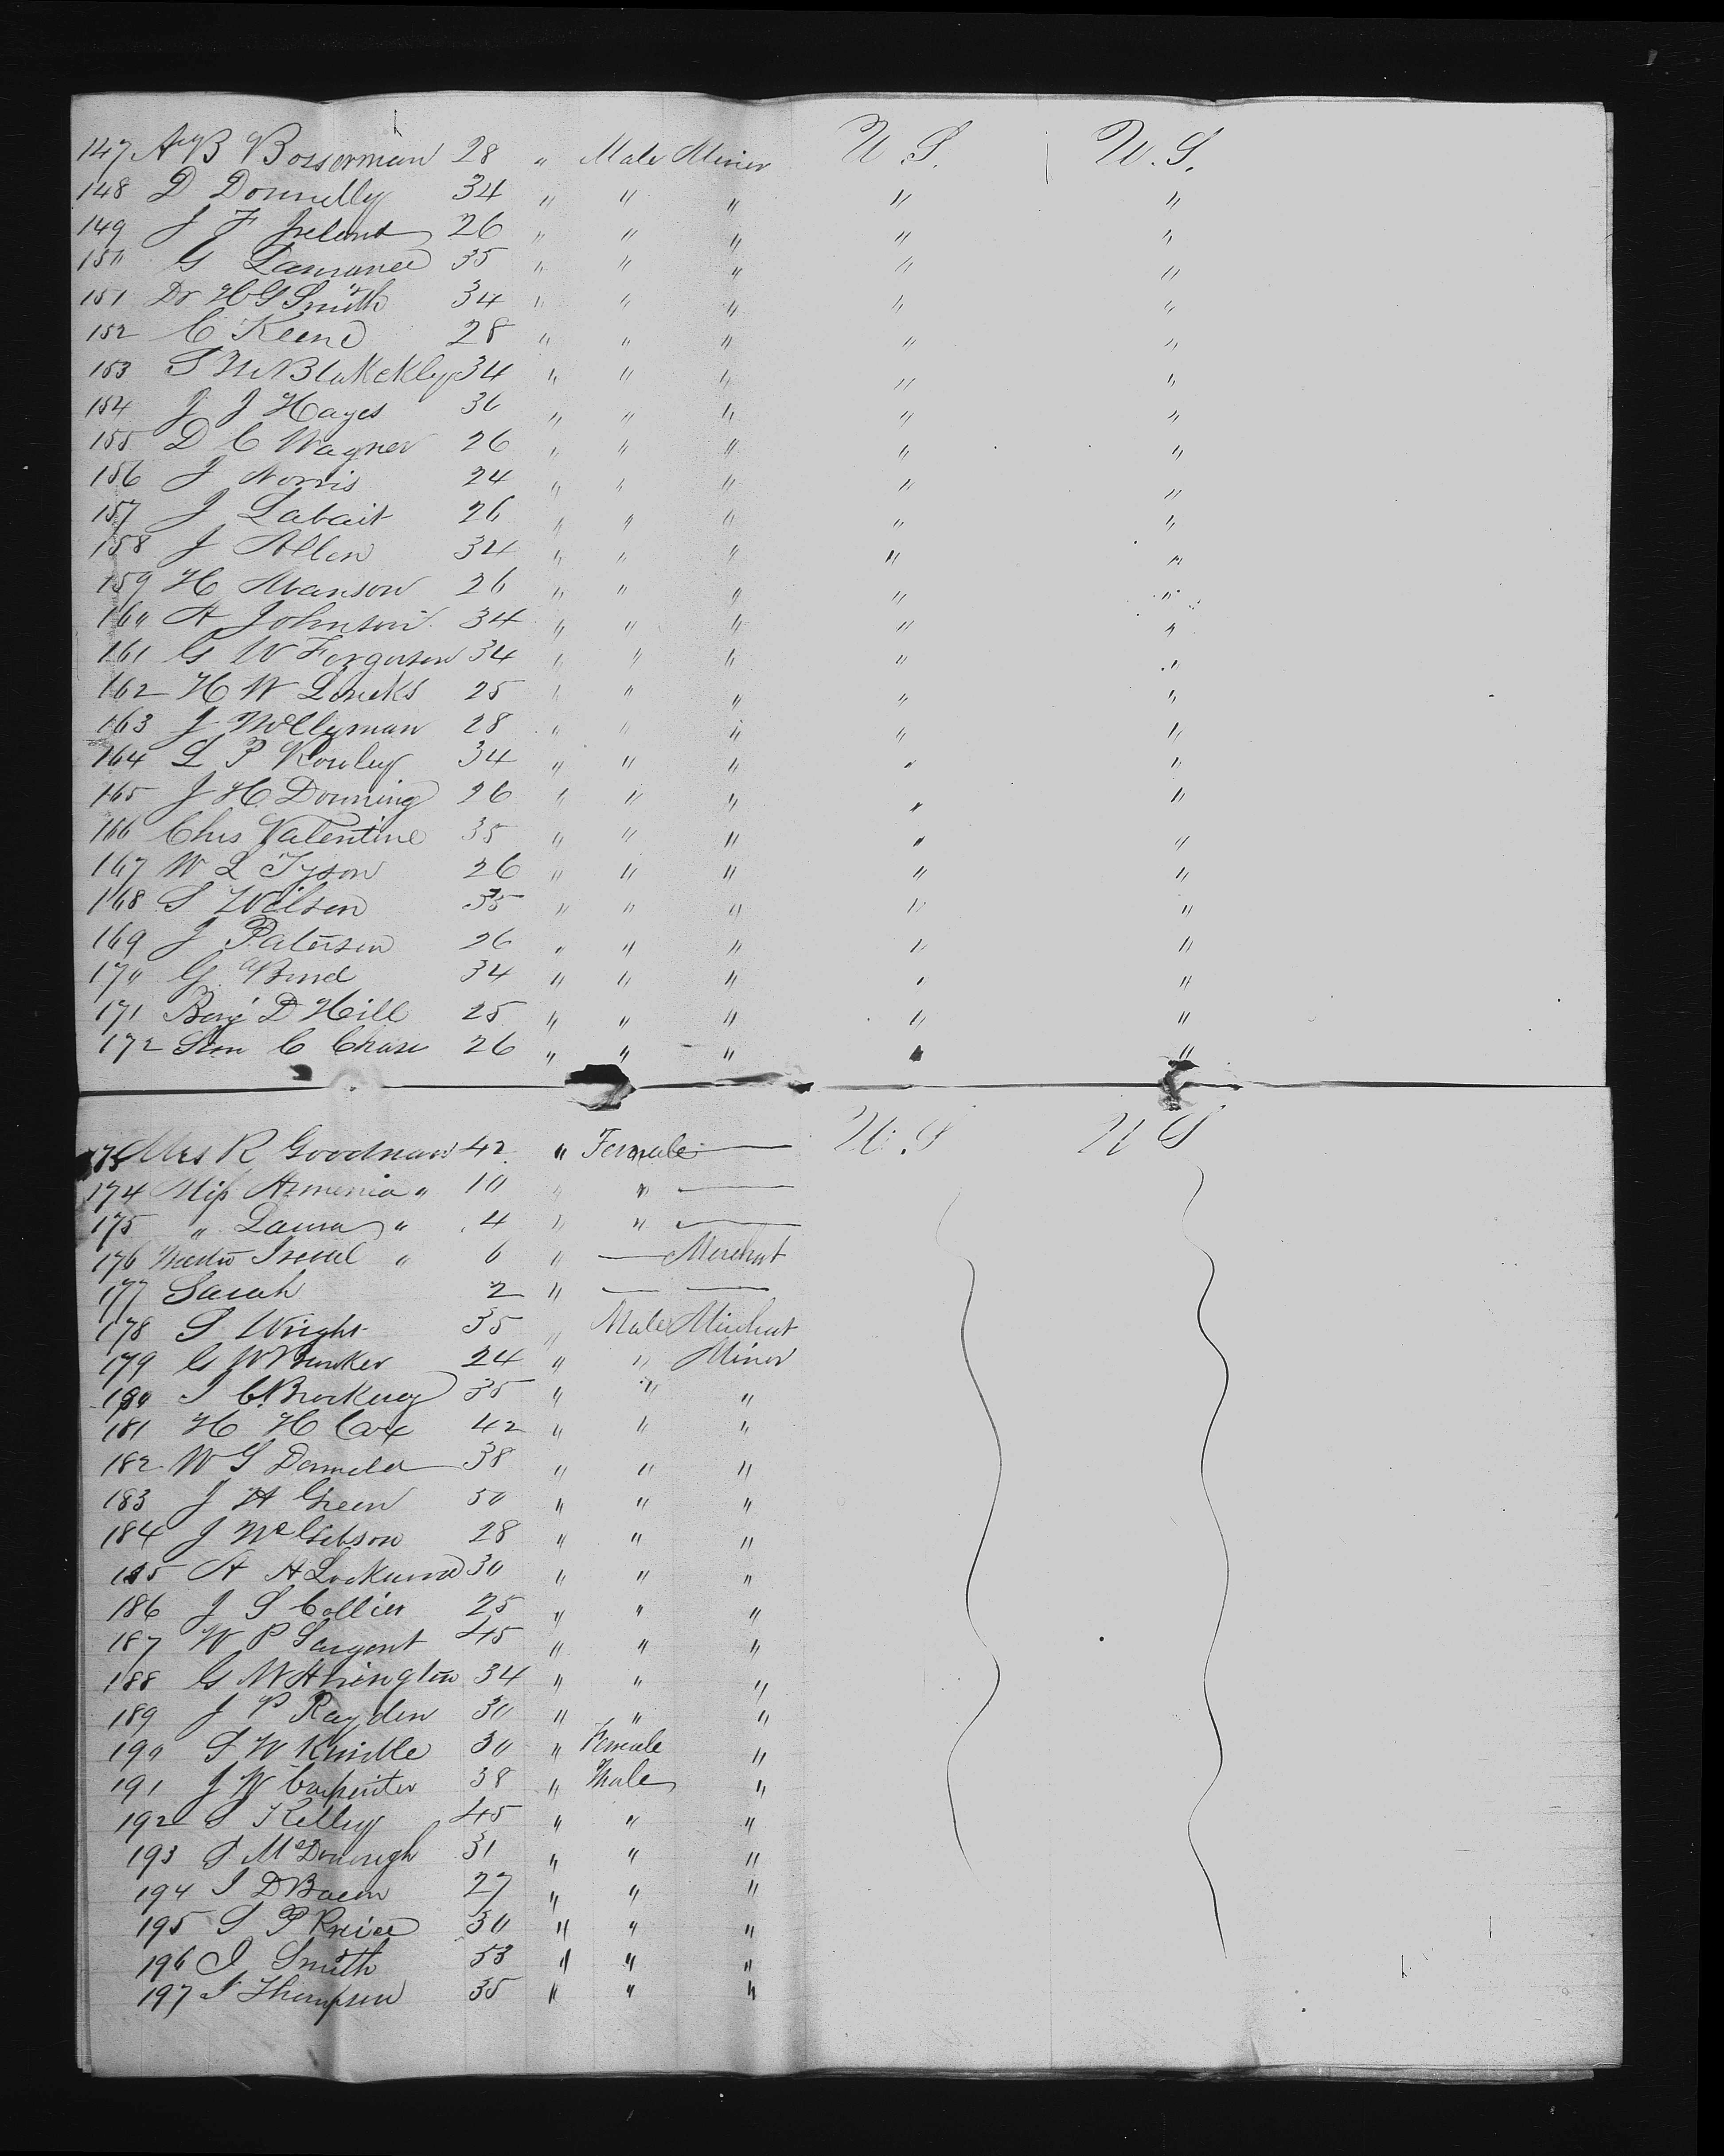 147 A B Bosserman 28 " Male Miner U.S. U.S.
148 D Donnelly 34 " " " " "
149 J F Ireland 26 " " " " "
150 G 35 " " " " "
151 Dr H G Smith 34 " " " " "
152 C Keene 28 " " " " "
153 S M Blakekley 34 " " " " "
154 J J Hayes 36 " " " " "
155 D C Wagner 26 " " " " "
156 J Norris 24 " " " " "
157 J Labait 26 " " " " "
158 J Allen 34 " " " " "
159 H Manson 26 " " " " "
160 A Johnson 34 " " " " "
161 G W Fergerson 34 " " " " "
162 H W Loucks 25 " " " " "
163 J 28 " " " " "
164 L P Rowley 34 " " " " "
165 J H Downing 26 " " " " "
166 Chs Valentine 35 " " " " "
167 W L Tyson 26 " " " " "
168 S Wilson 35 " " " " "
169 J Paterson 26 " " " " "
170 G 34 " " " " "
171 Benj D Hill 25 " " " " "
172 C Chase 26 " " " " "
173 Mrs R Goodman 42 " Female — U.S U S
174 Miss Armenia " 10 " " —
175 " Laura " 4 " " —
176 " 6 " — Merchant
177 Sarah 2 " — —
178 S Wright 35 " Male Merchant
179 G W Bunker 24 " " Miner
180 35 " " "
181 H H Cox 42 " " "
182 W G 38 " " "
183 J A Green 50 " " "
184 J Mc Gibson 28 " " "
185 A A Lockwood 30 " " "
186 J S Collier 25 " " "
187 W P Sargent 45 " " "
188 G W Athington 34 " " "
189 J P Rayden 30 " " "
190 S W Knidle 30 " Female "
191 J W Carpenter 38 " Male "
192 S Kelley 45 " " "
193 S McDonough 31 " " "
194 I D Bacon 27 " " "
195 S P 30 " " "
196 I Smith 53 " " "
197 I Thompson 35 " " "